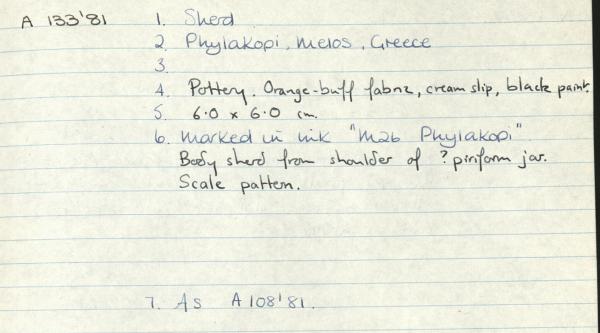 A 133'81
1. Sherd
2. Phylakopi, Melos, Greece
3.
4. Pottery. Orange-buff fabric, cream slip, black paint.
5. 6.0 x 6.0 cm.
6. Marked in ink "M26 Phylakopi"
Body sherd from shoulder of ? piriform jar.
Scale pattern.
7. As A 108'81.